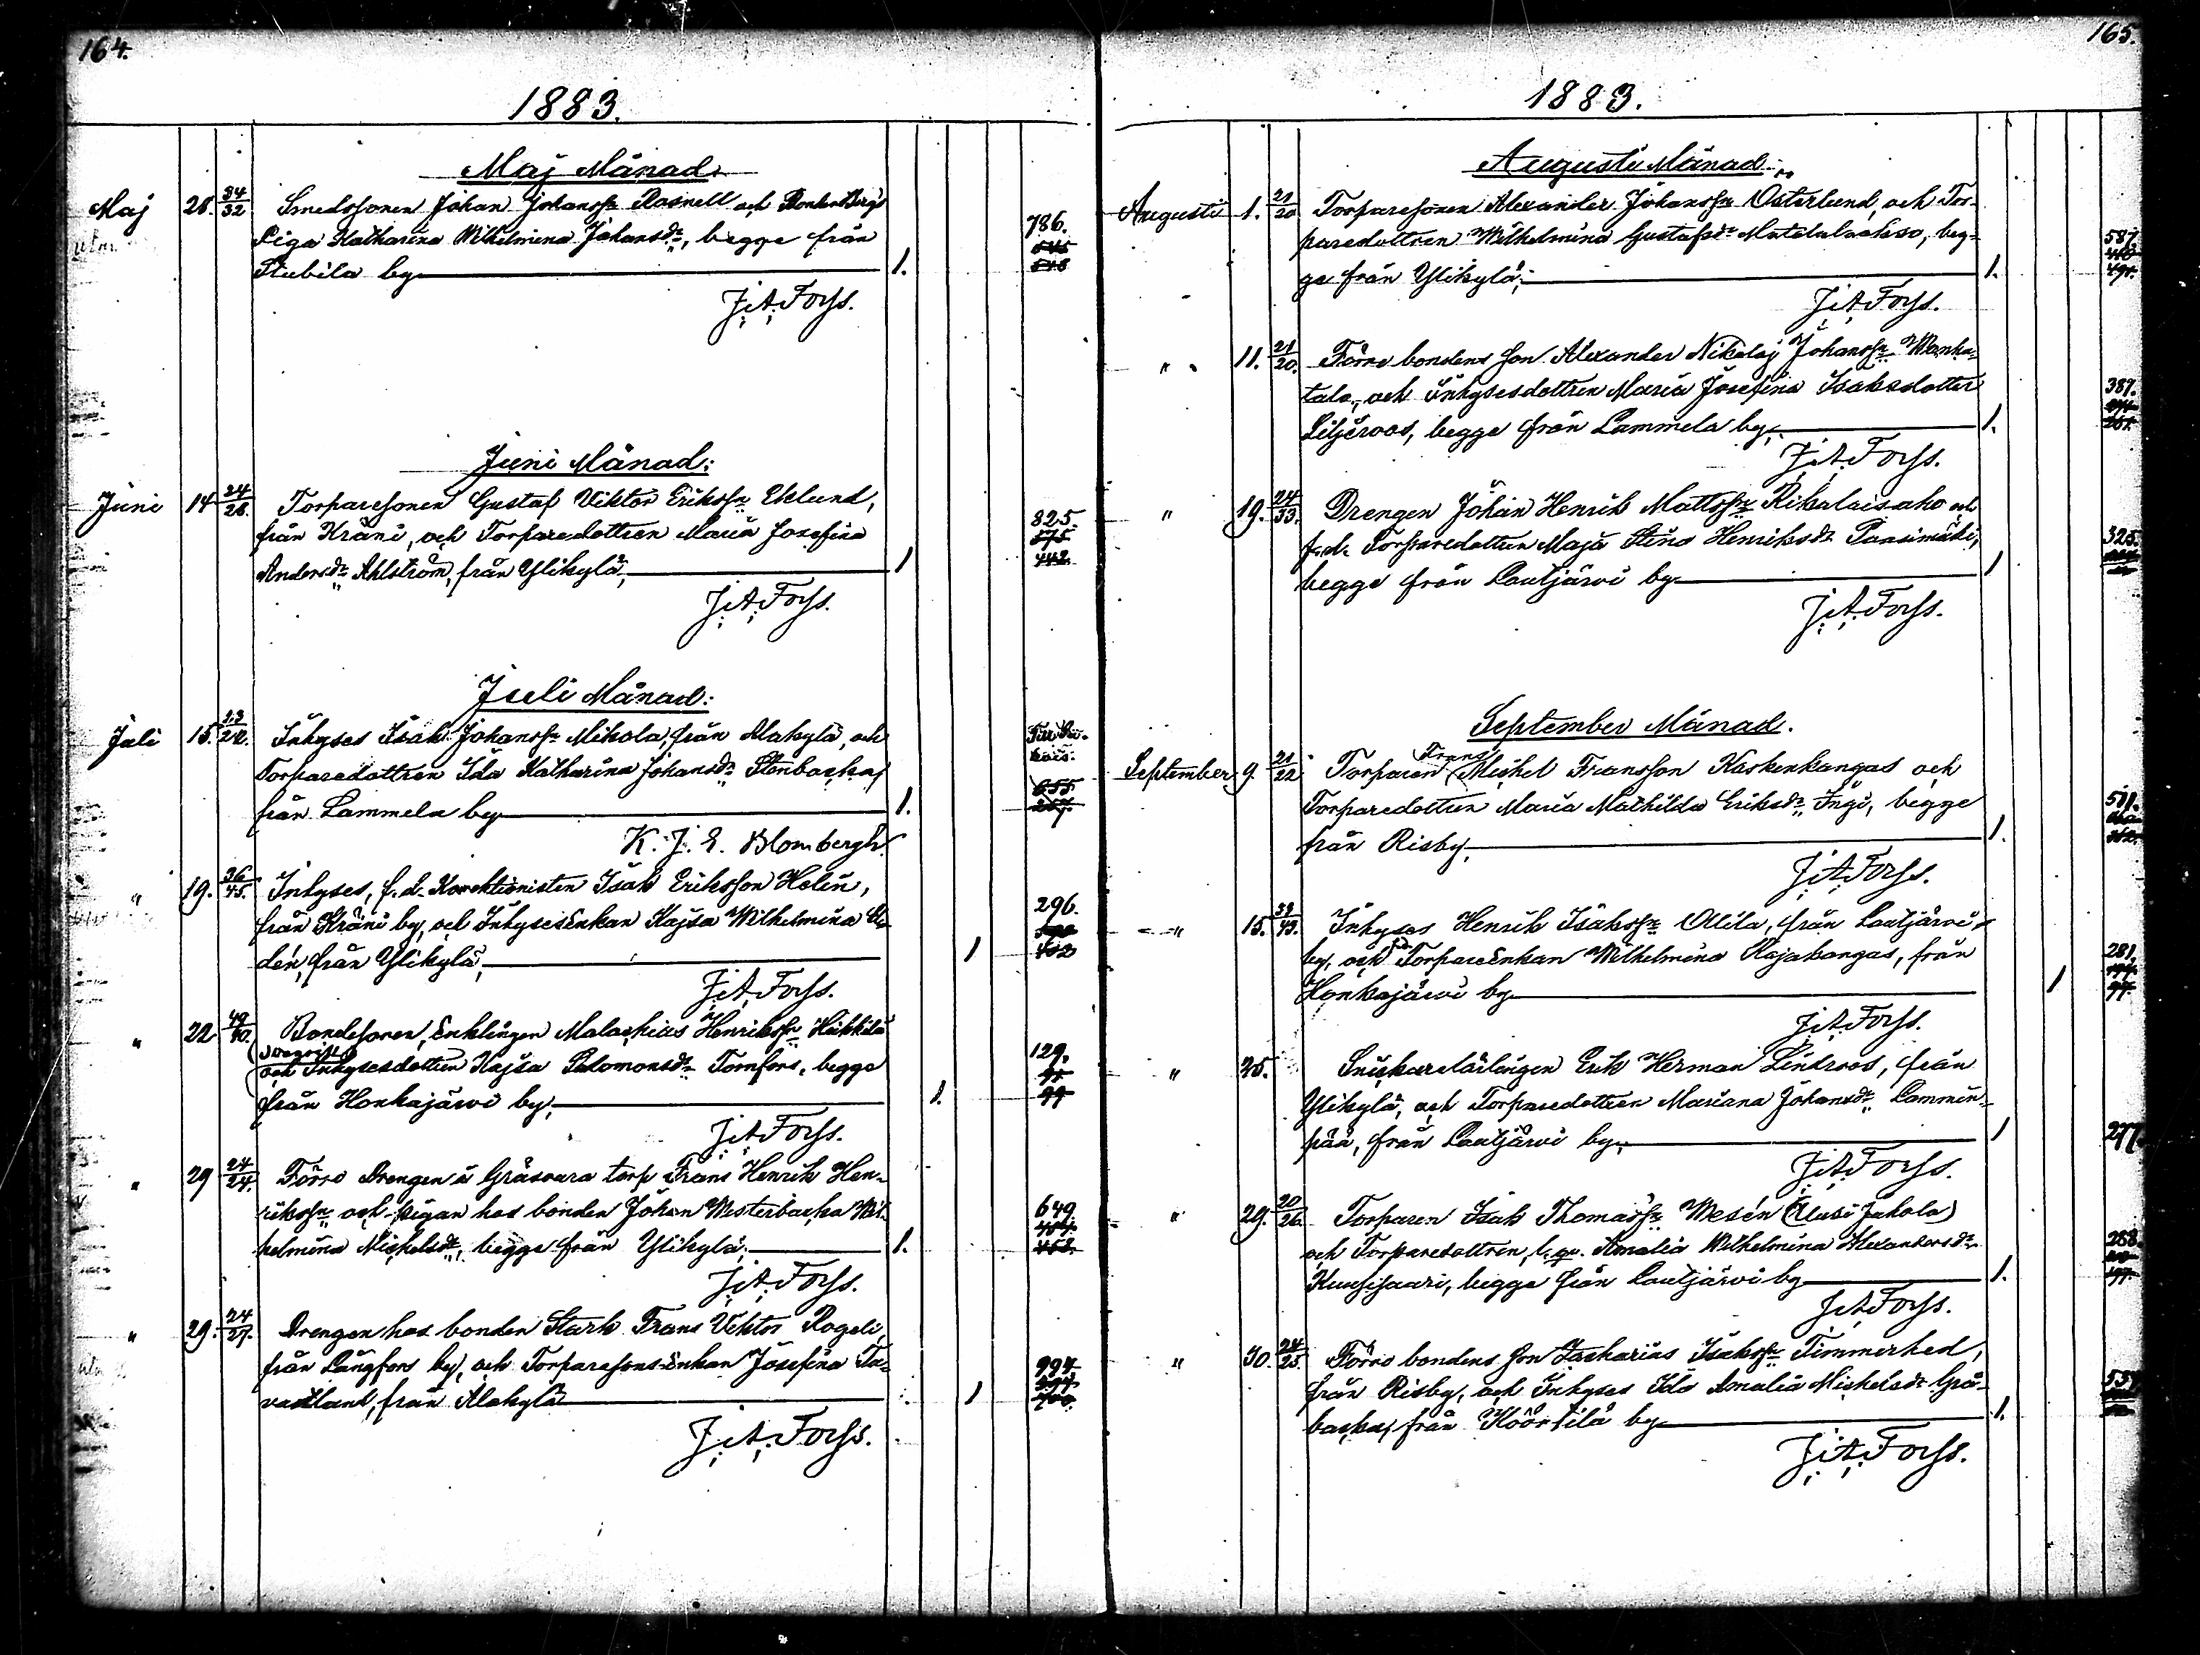 164.
1883.
Maj Månad.
Maj 28. 34/32 Smedssonen Johan Johanssn Rosnell och Bonden Bergs 786.
Piga Katharina Wilhelmina Johansdr, begge från
Stubila by 1.
J. A. Forss.
Juni Månad:
Juni 14 24/28. Torparesonen Gustaf Viktor Erikssn Eklund, 825.
från Kräni, och Torparedottren Maria Josefina
Andersdr Ahlström, från Ylikylä, 1
J. A. Forss.
Juli Månad:
Juli 15. 23/22. Inhyses Isak Johanssn Mikola, från Alakylä, och
Torparedottren Ida Katharina Johansdr Stenbacka, 655.
från Lammela by 1.
K. J. E. Blombergh.
" 19. 36/45. Inhyses, f. d. Korektionisten Isak Eriksson Helin, 296.
från Kräni by, och Inhysesenkan Kajsa Wilhelmina
dén, från Ylikylä, 1
J. A. Forss.
" 22 49/40. Bondesonen, Enklingen Malachias Henrikssn Heikkilä 129.
och Inhysesdottren Kajsa Salomonsdr Tornfors, begge
från Honkajärvi by, 1.
J. A. Forss.
" 29 24/24. Förre Drengen å Gråsvara torp Frans Henrik Hen-
rikssn och pigan hos bonden Johan Westerbacka Wil- 649.
helmina Michelsdr, begge från Ylikylä, 1.
J. A. Forss.
" 29. 24/27. Drengen hos bonden Stark Frans Viktor Rogeli,
från Långfors by, och Torparesons Enkan Josefina Ta- 994.
vastland, från Alakylä 1
J. A. Forss.
165.
1883.
Augusti Månad.
Augusti 1. 21/20 Torparesonen Alexander Johanssn Österlund, och Tor-
paredottren Wilhelmina Gustafsdr beg- 587
ge från Ylikylä, 1.
J. A. Forss.
" 11. 21/20. Förre bondens son Alexander Nikolaj Johanssn Wanha-
talo, och Inhysesdottren Maria Josefina Isaksdotter 387.
Liljeroos, begge från Lammela by, 1.
J. A. Forss.
" 19. 24/33. Drengen Johan Henrik Mattssn Rikalaisaho och
f. d. Torparedottren Maja Stina Henriksdr Paasimäki, 325.
begge från Lautjärvi by 1
J. A. Forss.
September Månad.
September 9. 21/22 Torparen (Frans Michel Fransson Kaskenkangas och
Torparedottren Maria Mathilda Eriksdr Ingi, begge 511.
från Risby, 1.
J. A. Forss.
" 15. 38/43. Inhyses Henrik Isakssn Ollila, från Lautjärvi
by, och fd Torpareenkan Wilhelmina Kajakangas, från 281.
Honkajärvi by 1
J. A. Forss.
" 25. Snickarelärlingen Erik Herman Lindroos, från
Ylikylä, och Torparedottren Mariana Johansdr Lammin-
pää, från Lautjärvi by, 1 277
J. A. Forss.
" 29. 20/26. Torparen Isak Thomassn Wesén (Uusi Jakola)
och Torparedottren, Amalia Wilhelmina Alexandersdr 288.
Kuusisaari, begge från Lautjärvi by 1.
J. A. Forss.
" 30. 24/25. Förre bondens son Zacharias Isakssn Timmerhed,
från Risby, och Inhyses Ida Amalia Michelsdr Grå-
backa, från Köörtilä by 1.
J. A. Forss.